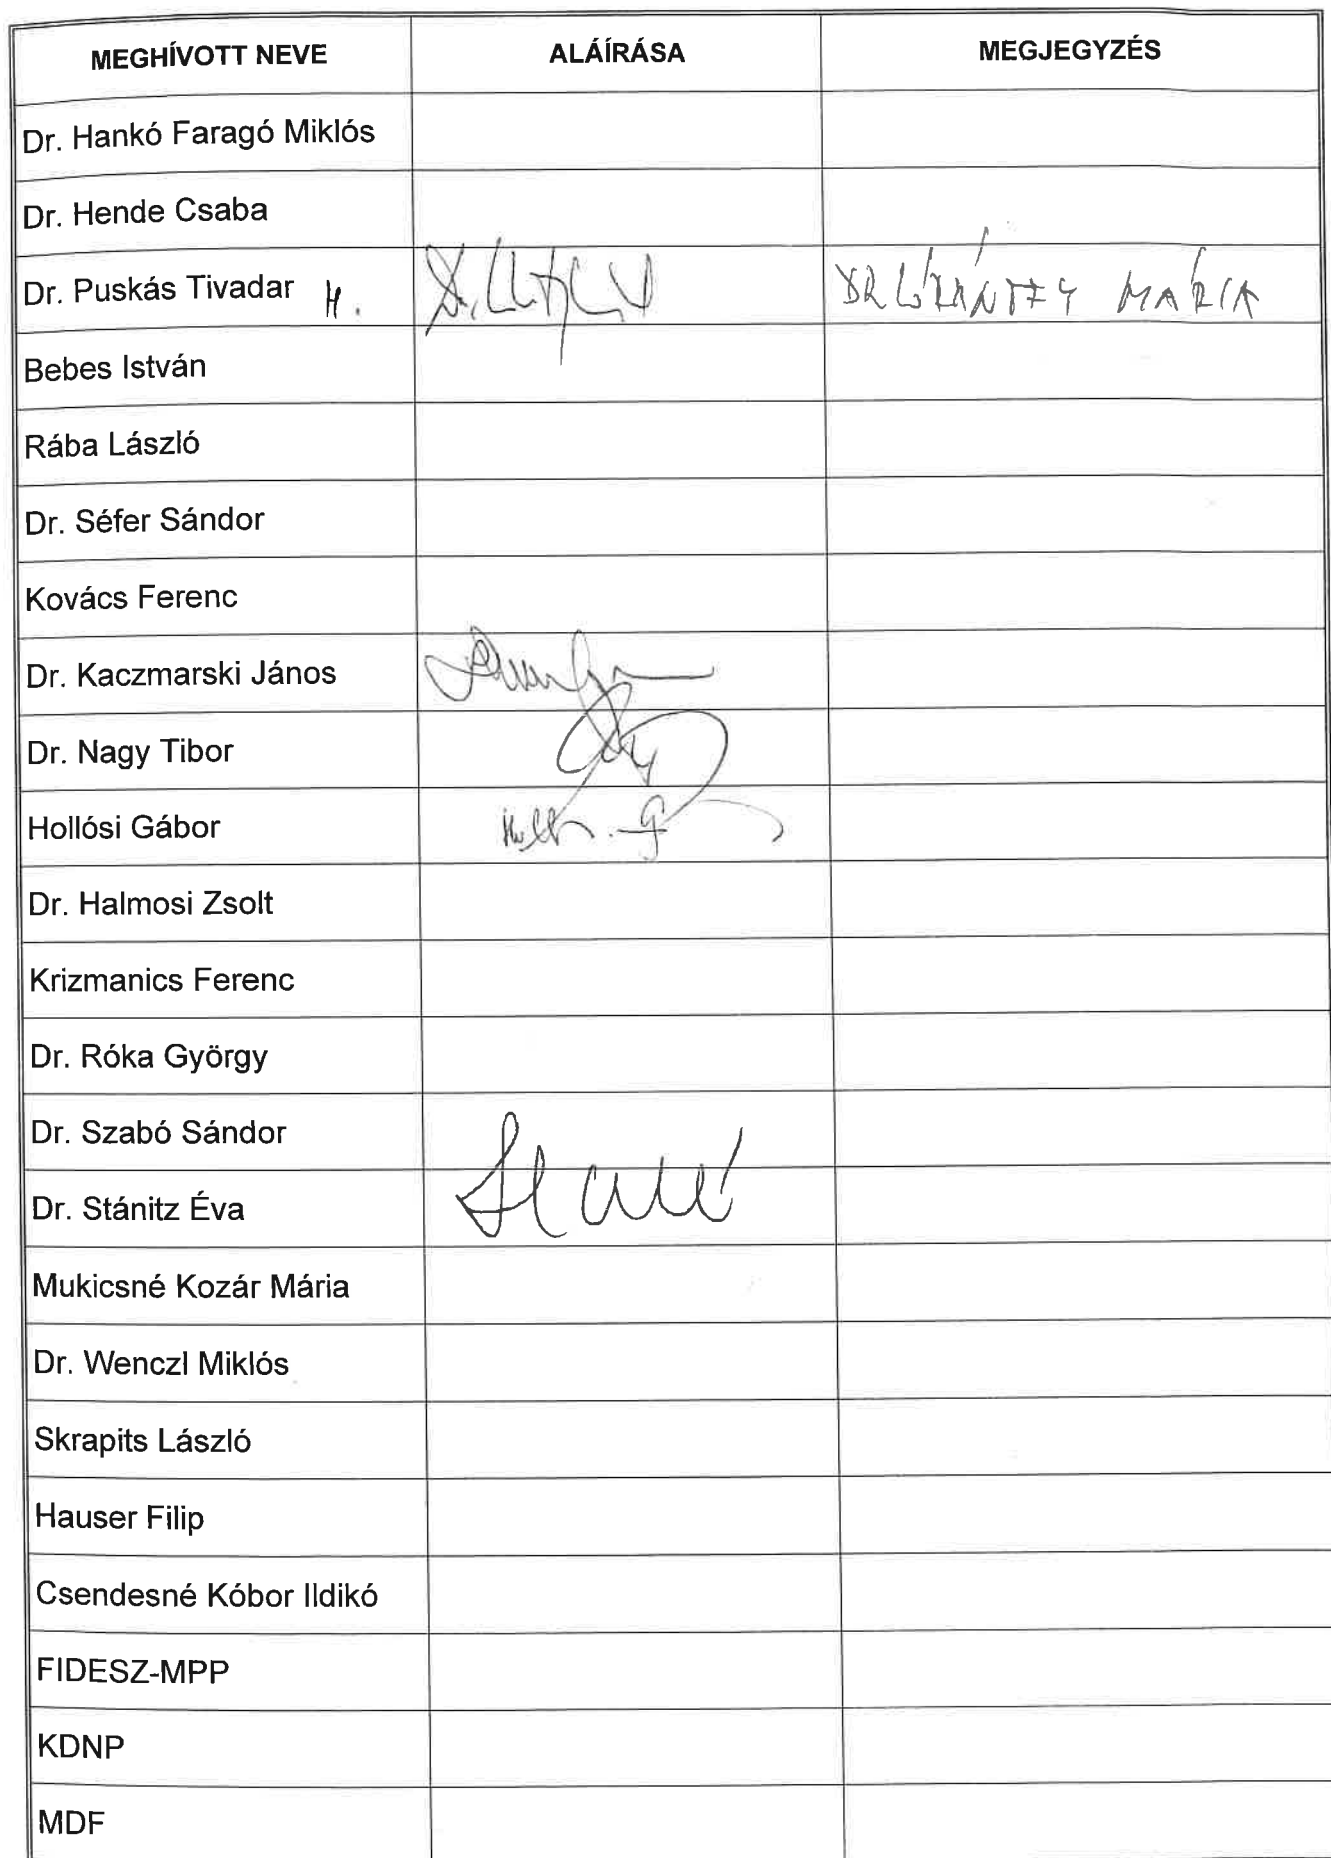 MEGHÍVOTT NEVE ALÁÍRÁSA MEGJEGYZÉS
Dr. Hankó Faragó Miklós
Dr. Hende Csaba
Dr. Puskás Tivadar H. DR LÓRÁNTFY MÁRIA
Bebes István
Rába László
Dr. Séfer Sándor
Kovács Ferenc
Dr. Kaczmarski János
Dr. Nagy Tibor
Hollósi Gábor
Dr. Halmosi Zsolt
Krizmanics Ferenc
Dr. Róka György
Dr. Szabó Sándor
Dr. Stánitz Éva
Mukicsné Kozár Mária
Dr. Wenczl Miklós
Skrapits László
Hauser Filip
Csendesné Kóbor Ildikó
FIDESZ-MPP
KDNP
MDF